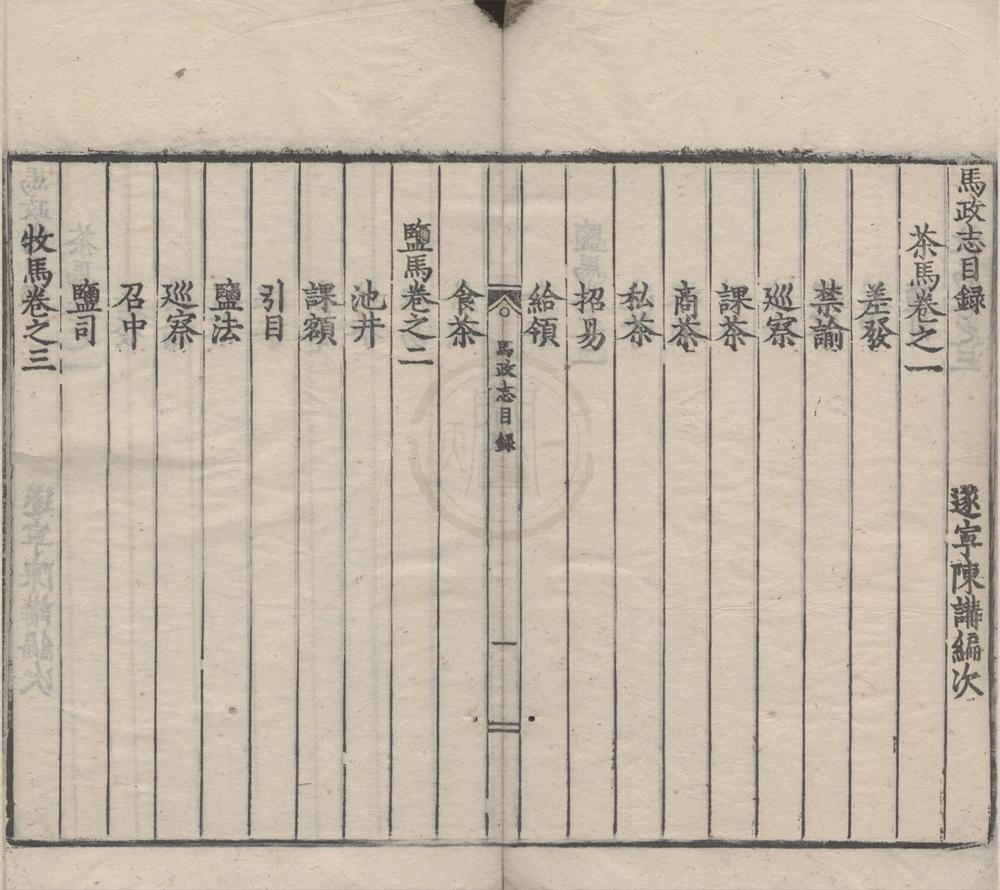 馬政志目録 遂寧陳講編次
茶馬卷之一
差發
禁諭
巡察
課茶
商茶
私茶
招易
給領
馬政志目録 一
食茶
鹽馬卷之二
池井
課額
引目
鹽法
巡察
召中
鹽司
牧馬卷之三